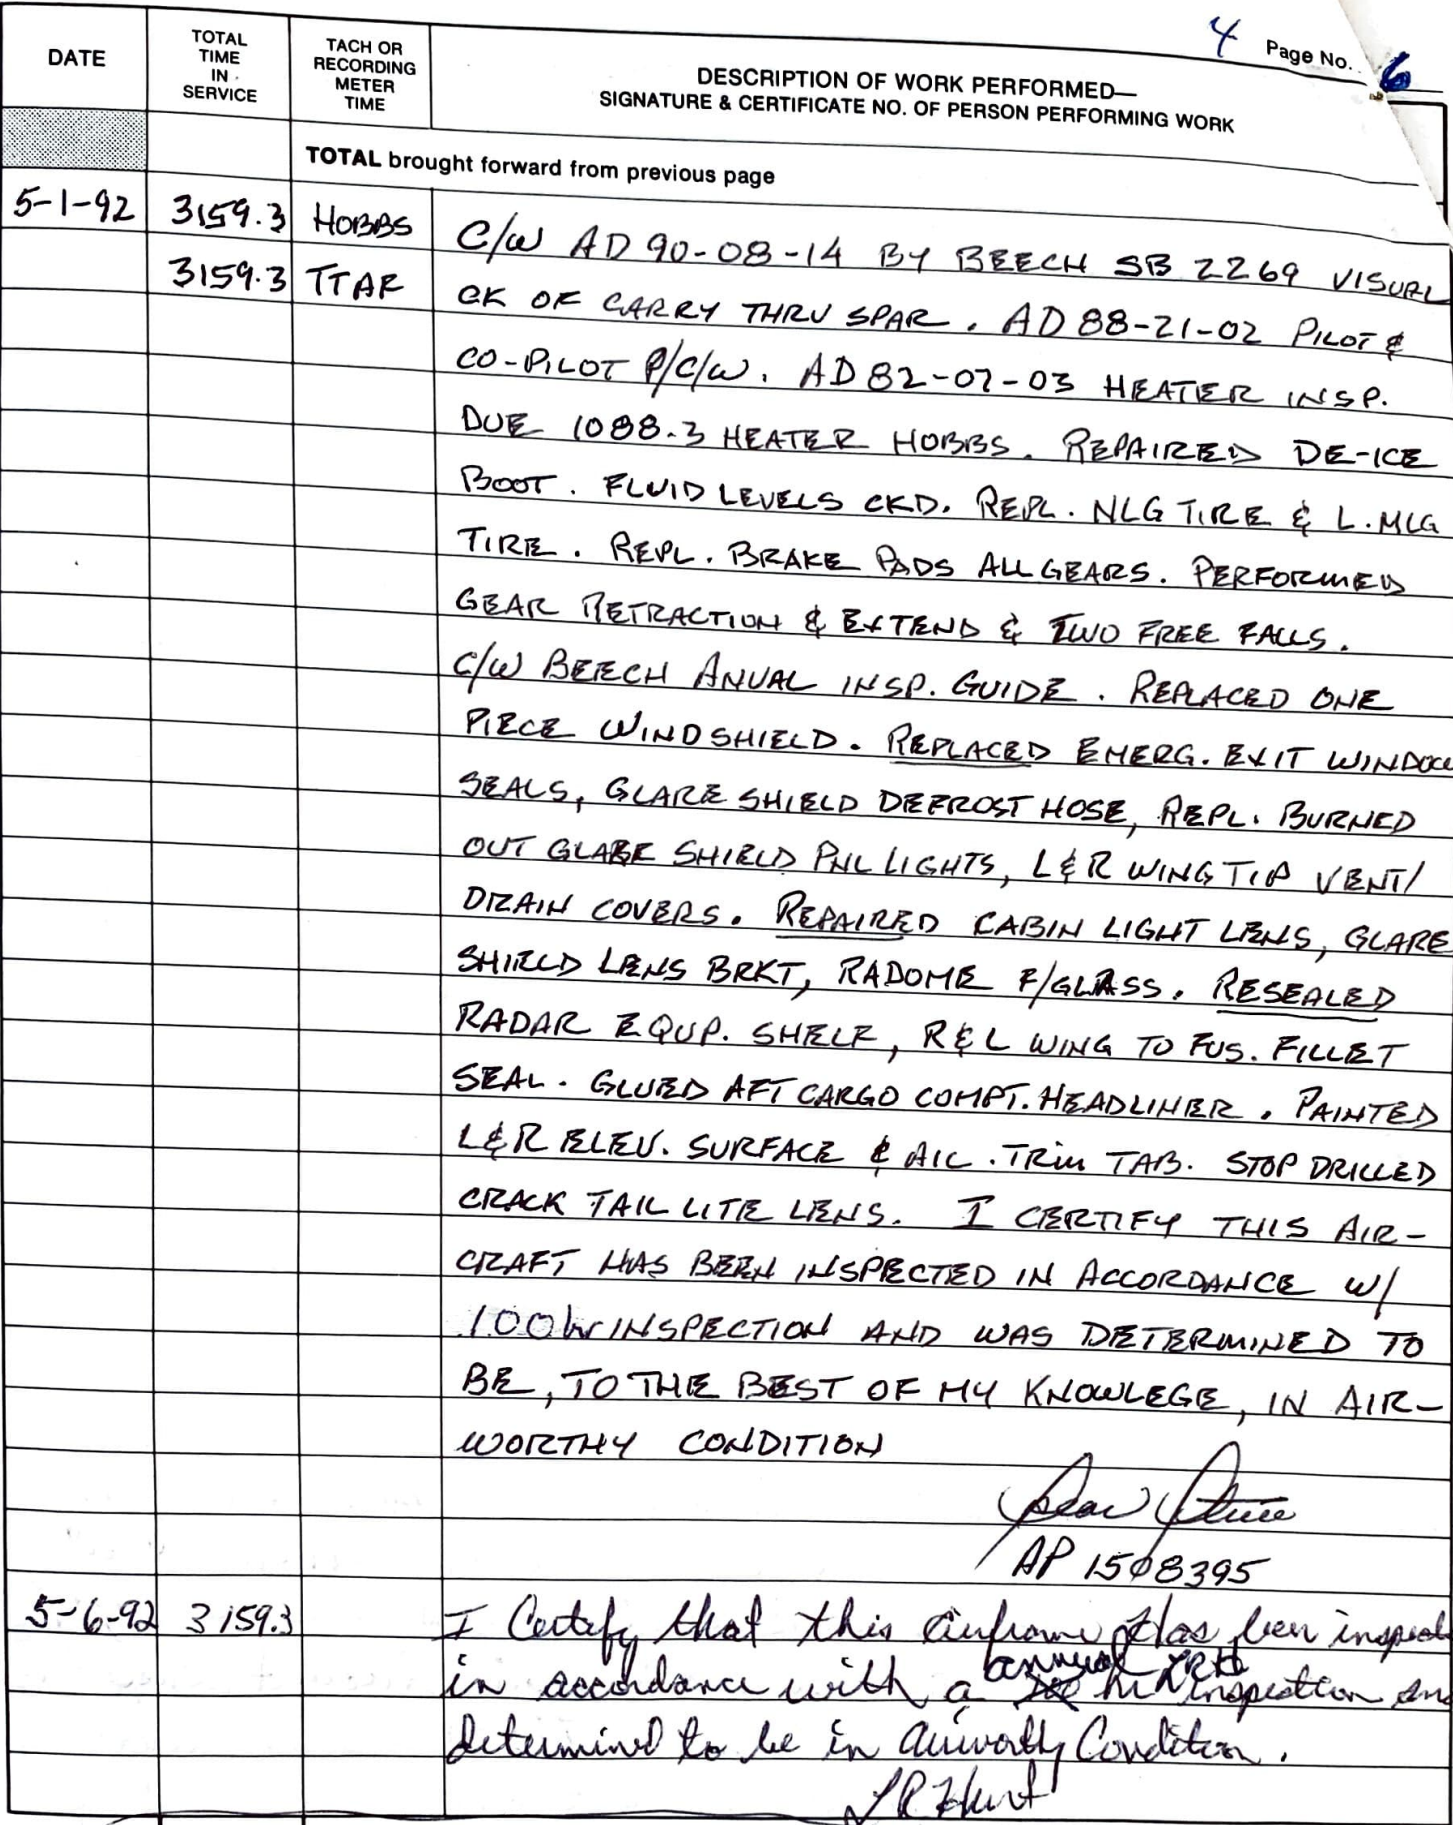 4 Page No. 6
DATE
TOTAL TIME IN SERVICE
TACH OR RECORDING METER TIME
DESCRIPTION OF WORK PERFORMED—
SIGNATURE & CERTIFICATE NO. OF PERSON PERFORMING WORK
TOTAL brought forward from previous page
5-1-92 3159.3 HOBBS C/W AD 90-08-14 BY BEECH SB 2269 VISUAL
3159.3 TTAF CK OF CARRY THRU SPAR. AD 88-21-02 PILOT &
CO-PILOT P/C/W. AD 82-07-03 HEATER INSP.
DUE 1088.3 HEATER HOBBS. REPAIRED DE-ICE
BOOT. FLUID LEVELS CKD. REPL. NLG TIRE & L. MLG
TIRE. REPL. BRAKE PADS ALL GEARS. PERFORMED
GEAR RETRACTION & EXTEND & TWO FREE FALLS.
C/W BEECH ANUAL INSP. GUIDE. REPLACED ONE
PIECE WINDSHIELD. REPLACED EMERG. EXIT WINDOW
SEALS, GLARE SHIELD DEFROST HOSE, REPL. BURNED
OUT GLARE SHIELD PNL LIGHTS, L & R WING TIP VENT/
DRAIN COVERS. REPAIRED CABIN LIGHT LENS, GLARE
SHIELD LENS BRKT, RADOME F/GLASS. RESEALED
RADAR EQUP. SHELF, R & L WING TO FUS. FILLET
SEAL. GLUED AFT CARGO COMPT. HEADLINER. PAINTED
L & R ELEV. SURFACE & AIL. TRIM TAB. STOP DRILLED
CRACK TAIL LITE LENS. I CERTIFY THIS AIR-
CRAFT HAS BEEN INSPECTED IN ACCORDANCE W/
100 hr INSPECTION AND WAS DETERMINED TO
BE, TO THE BEST OF MY KNOWLEGE, IN AIR-
WORTHY CONDITION
AP 1508395
5-6-92 3159.3 I Certify that this airframe has been inspected
in accordance with a annual LRH inspection and
determined to be in airworthy Condition.
LR Hunt